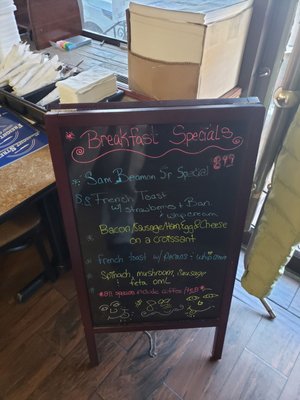 Breakfast Specials
8.99
Sam Beamon Sr Special
French Toast
w/ strawberries + Ban
+ whip cream
Bacon/Sausage/Ham Egg & Cheese
on a croissant
French toast w/ + whip cream
Spinach, mushroom, Sausage
+ feta oml
specials include coffee